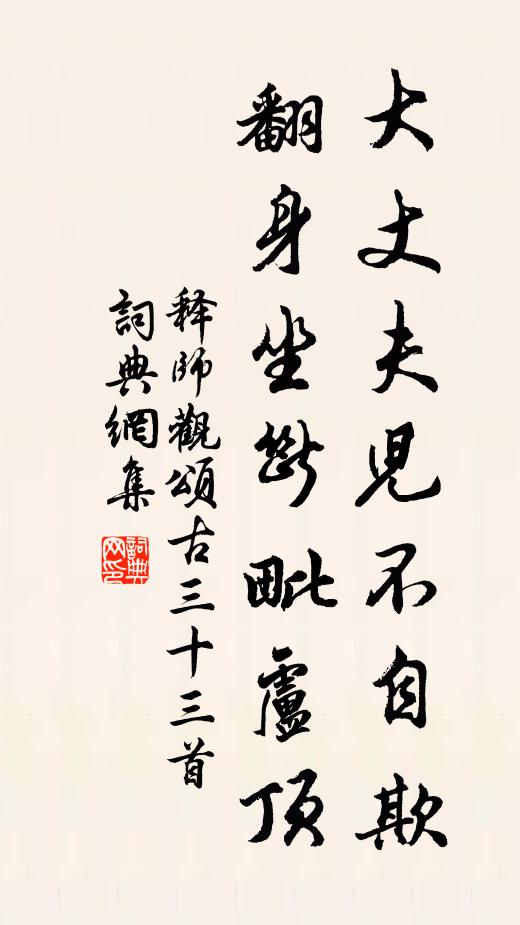 大丈夫兒不自欺
翻身坐斷毗盧頂
释師觀頌古三十三首
詞典網集
詞典網印